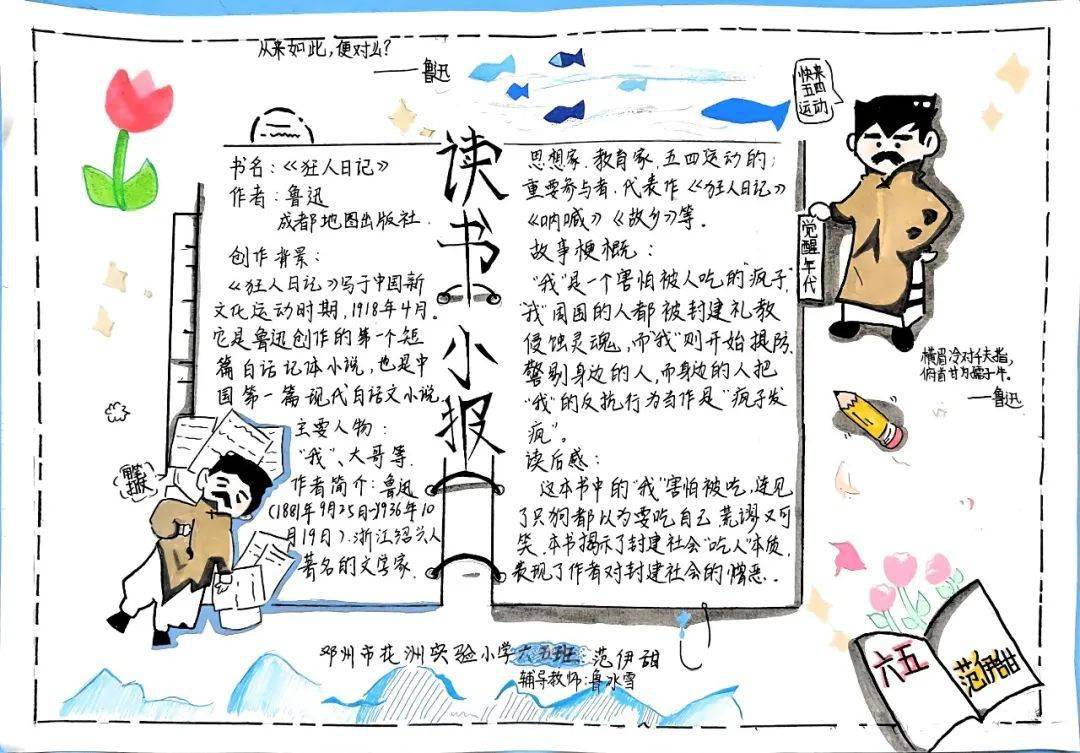 从来如此，便对么？
——鲁迅
读书小报
书名：《狂人日记》
作者：鲁迅
成都地图出版社.
创作背景：
《狂人日记》写于中国新
文化运动时期，1918年4月。
它是鲁迅创作的第一个短
篇白话记体小说，也是中
国第一篇现代白话文小说
主要人物：
“我”、大哥等.
作者简介：鲁迅
(1881年9月25日-1936年10
月19日).浙江绍兴人
著名的文学家.
思想家.教育家.五四运动的;
重要参与者.代表作《狂人日记》
《呐喊》《故乡》等.
故事梗概：
“我”是一个害怕被人吃的“疯子”
“我”周围的人都被封建礼教
侵蚀灵魂，而“我”则开始提防.
警剔身边的人，而身边的人把
“我”的反抗行为当作是“疯子发
疯”。
读后感：
这本书中的“我”害怕被吃，连见
了只狗都以为要吃自己.荒谬又可
笑.本书揭示了封建社会“吃人”本质，
表现了作者对封建社会的憎恶..
快来
五四
运动
觉醒年代
横眉冷对千夫指，
俯首甘为孺子牛。
——鲁迅
邓州市花洲实验小学六五班：范伊甜
辅导教师：鲁水雪
六五
范伊甜